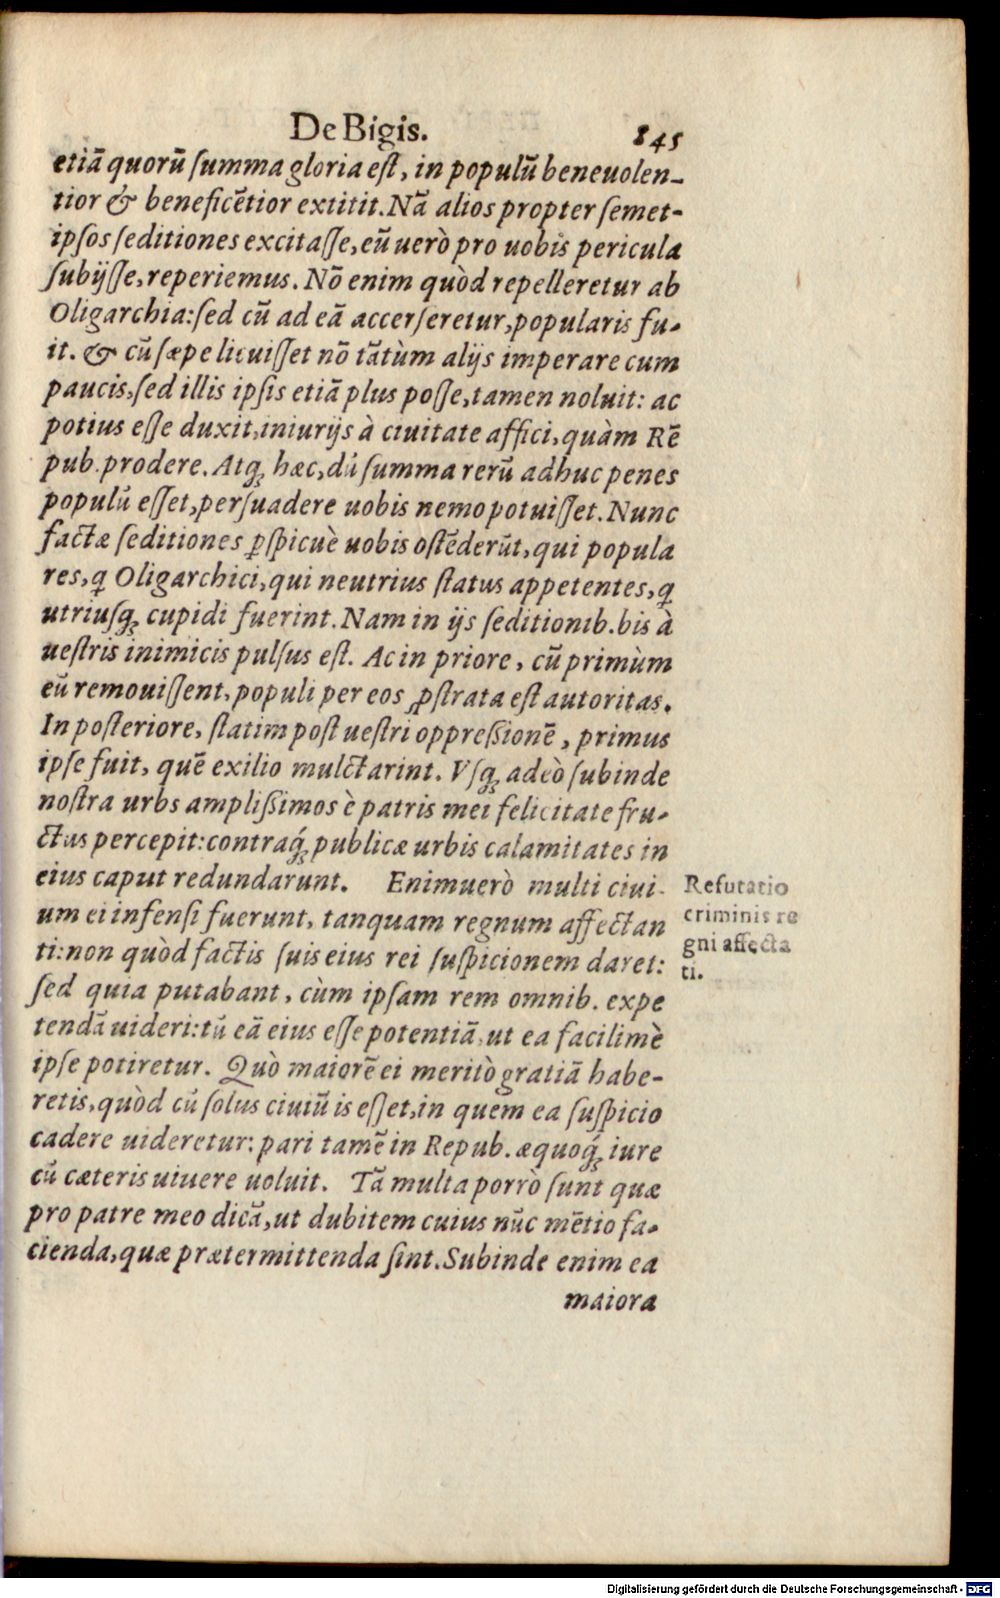 De Bigis. 845
etiā quorū ſumma gloria eſt, in populū beneuolen-
tior & beneficētior extitit. Nā alios propter ſemet-
ipſos ſeditiones excitaſſe, eū uerò pro uobis pericula
ſubijſſe, reperiemus. Nō enim quòd repelleretur ab
Oligarchia: ſed cū ad eā accerſeretur, popularis fu-
it. & cū ſæpe licuiſſet nō tātùm alijs imperare cum
paucis, ſed illis ipſis etiā plus poſſe, tamen noluit: ac
potius eſſe duxit, iniurijs à ciuitate affici, quàm Rē
pub. prodere. Atq; hæc, dū ſumma rerū adhuc penes
populū eſſet, perſuadere uobis nemo potuiſſet. Nunc
factæ ſeditiones ꝑſpicuè uobis oſtēderūt, qui popula
res, ꝗ Oligarchici, qui neutrius ſtatus appetentes, ꝗ
utriuſq; cupidi fuerint. Nam in ijs ſeditionib. bis à
ueſtris inimicis pulſus eſt. Ac in priore, cū primùm
eū remouiſſent, populi per eos ꝓſtrata eſt autoritas.
In poſteriore, ſtatim poſt ueſtri oppreßionē, primus
ipſe fuit, quē exilio mulctarint. Vſq; adeò ſubinde
noſtra urbs amplißimos è patris mei felicitate fru-
ctus percepit: contraq́; publicæ urbis calamitates in
eius caput redundarunt. Enimuerò multi ciui-
um ei infenſi fuerunt, tanquam regnum affectan
ti: non quòd factis ſuis eius rei ſuſpicionem daret:
ſed quia putabant, cùm ipſam rem omnib. expe
tendā uideri: tū eā eius eſſe potentiā, ut ea facilimè
ipſe potiretur. Quò maiorē ei meritò gratiā habe-
retis, quòd cū ſolus ciuiū is eſſet, in quem ea ſuſpicio
cadere uideretur: pari tamē in Repub. æquoq́; iure
cū cæteris uiuere uoluit. Tā multa porrò ſunt quæ
pro patre meo dicā, ut dubitem cuius nūc mētio fa-
cienda, quæ prætermittenda ſint. Subinde enim ea
maiora
Refutatio
criminis re
gni affecta
ti.
Digitalisierung gefördert durch die Deutsche Forschungsgemeinschaft - DFG